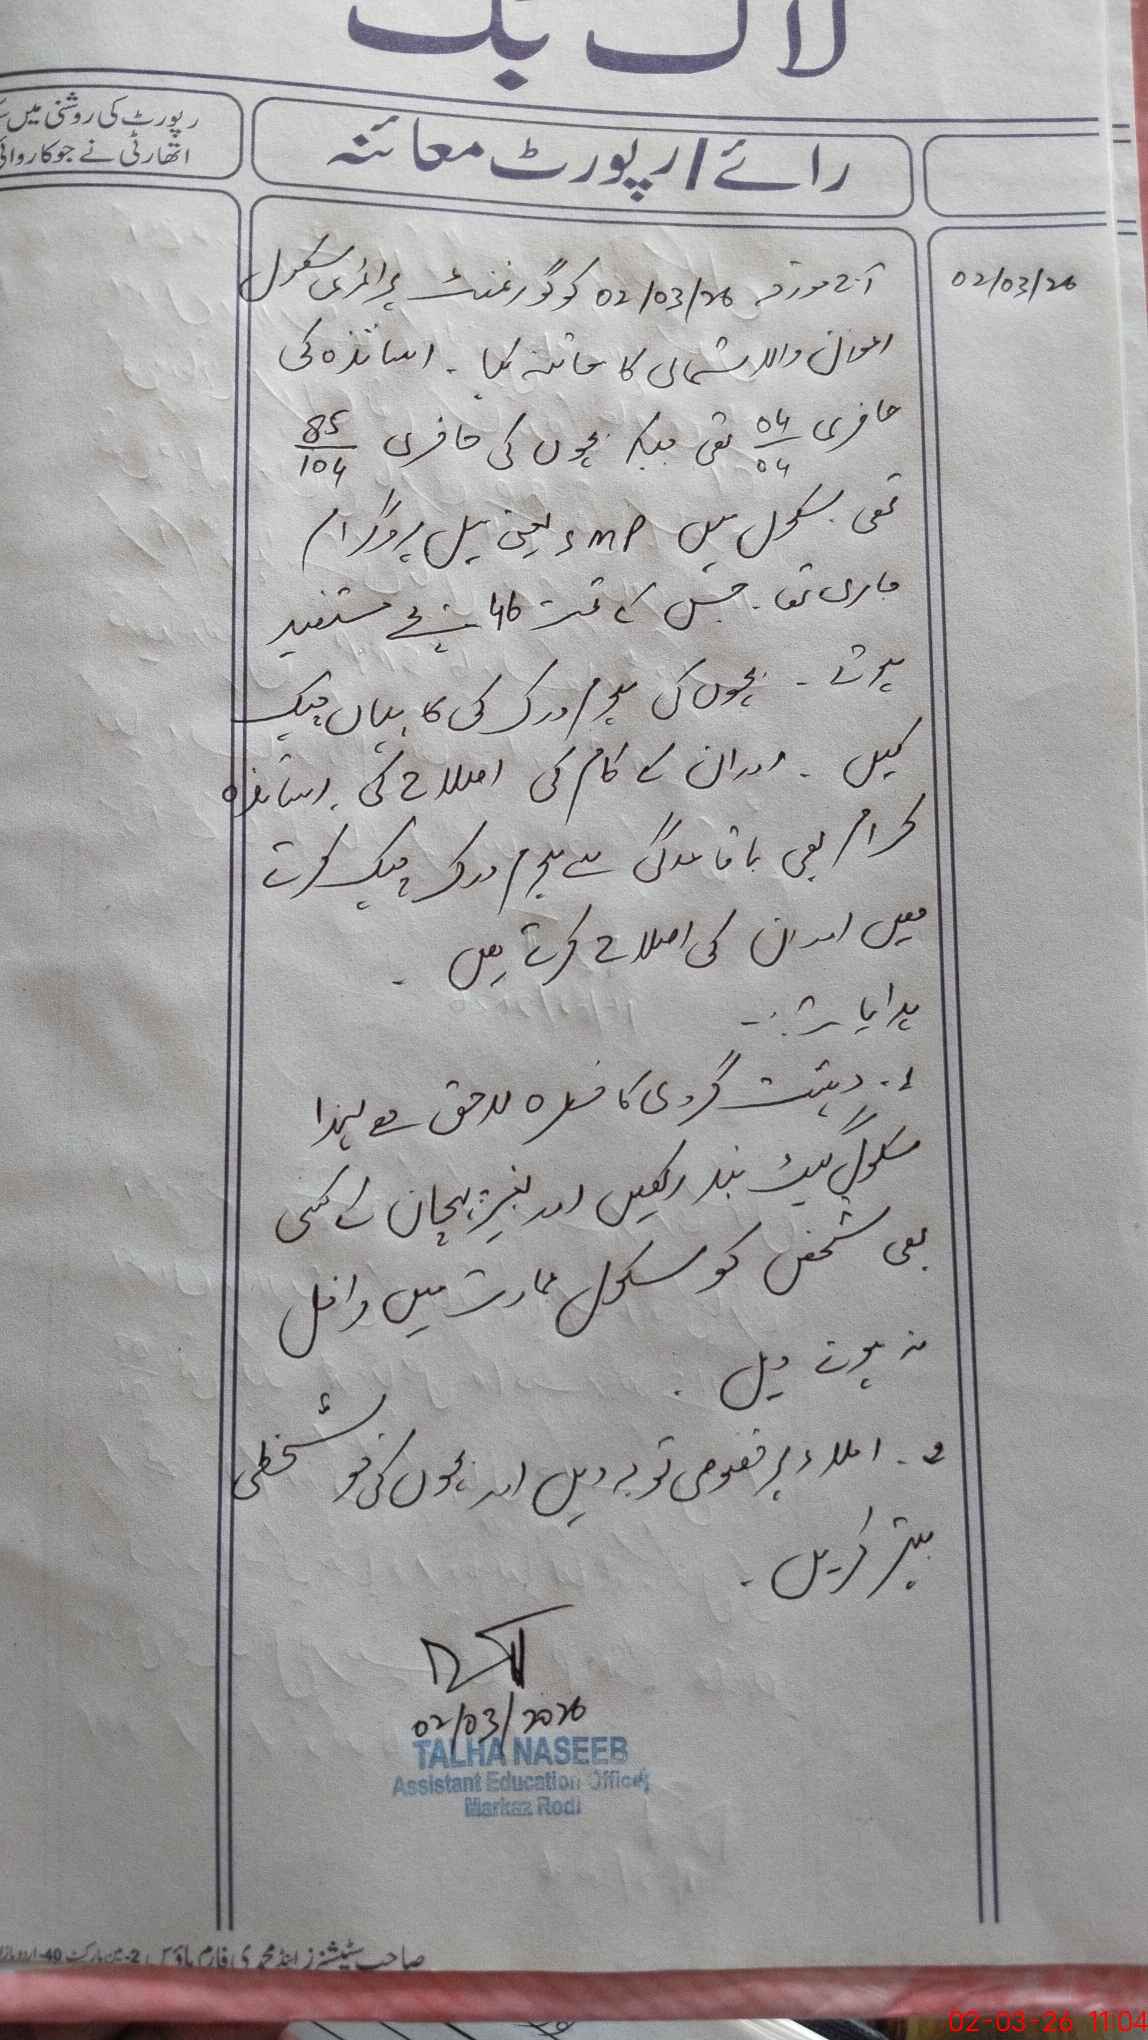 لاگ بک
رپورٹ کی روشنی میں
اتھارٹی نے جو کاروائی
رائے/رپورٹ معائنہ
02/03/26
آج مورخہ 02/03/26 کو گورنمنٹ پرائمری سکول
اعوان والا شمالی کا معائنہ کیا ۔ اساتذہ کی
حاضری 04/04 تھی جبکہ بچوں کی حاضری 85/104
تھی سکول میں SMP یعنی میل پروگرام
جاری تھا ۔ جس کے تحت 46 بچے مستفید
ہوئے ۔ بچوں کی ہوم ورک کی کاپیاں چیک
کیں ۔ اور ان کے کام کی اصلاح کی ۔ اساتذہ
کرام بھی باقاعدگی سے ہوم ورک چیک کرتے
ہیں اور ان کی اصلاح کرتے ہیں ۔
ہدایات :-
1 ۔ دہشت گردی کا خطرہ لاحق ہے لہذا
سکول گیٹ بند رکھیں اور بغیر پہچان کے کسی
بھی شخص کو سکول عمارت میں داخل
نہ ہونے دیں ۔
2 ۔ املاء پر خصوصی توجہ دیں اور بچوں کی خوشخطی
بہتر کریں ۔
02/03/2026
TALHA NASEEB
Assistant Education Officer
Markaz Rodi
صاحب سٹیشنرز اینڈ محمدی فارم ہاؤس 2-مین مارکیٹ 40-اردو بازار
02-03-26 11:04